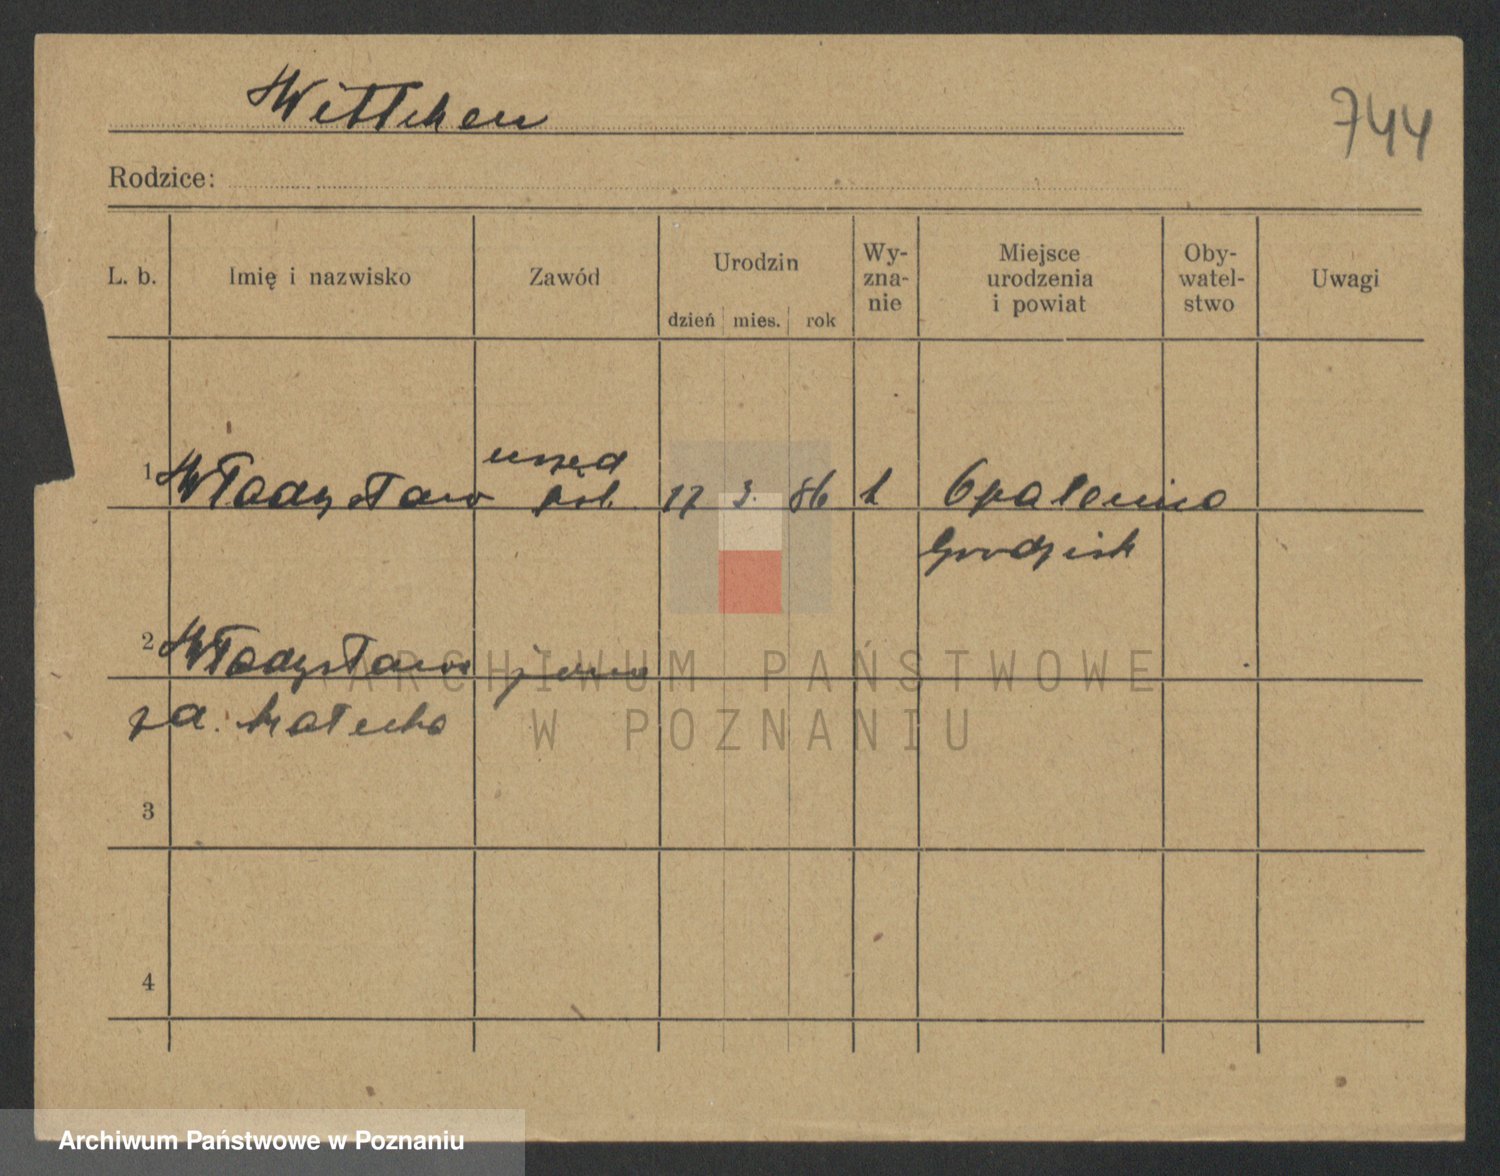 Wittchen
744
Rodzice:
L. b. Imię i nazwisko Zawód Urodzin Wy-zna-nie Miejsce urodzenia i powiat Oby-watel-stwo Uwagi
dzień mies. rok
1 Władysław urzęd 17 3. 86 k Opalenica
Grodzisk
2 Władysława żona
3
4
ARCHIWUM PAŃSTWOWE
W POZNANIU
Archiwum Państwowe w Poznaniu